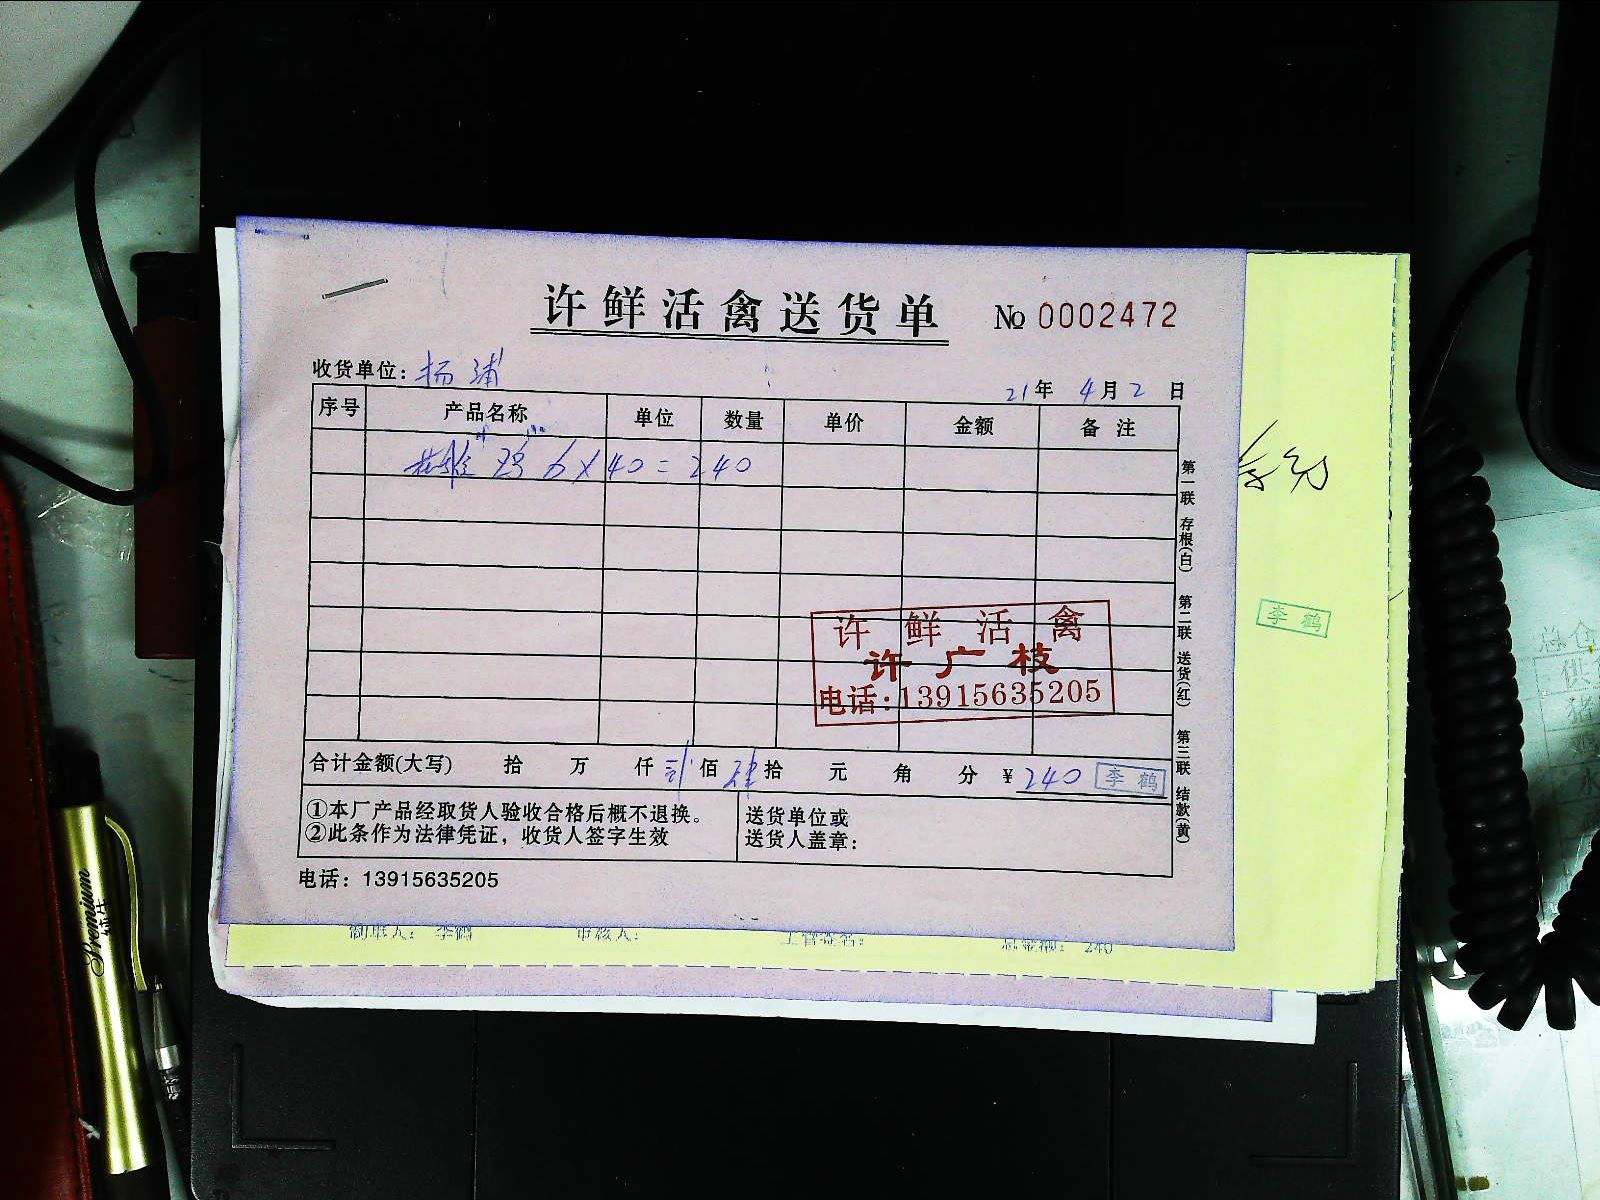 许鲜活禽送货单 № 0002472
收货单位：杨浦
21年 4月 2日
序号 产品名称 单位 数量 单价 金额 备注
鸡 6×40=240
第一联 存根(白) 第二联 送货(红) 第三联 结款(黄)
许鲜活禽
许广枝
电话:13915635205
合计金额(大写) 拾 万 仟 贰佰 肆拾 元 角 分 ¥240 李鹤
①本厂产品经取货人验收合格后概不退换。
②此条作为法律凭证，收货人签字生效
送货单位或
送货人盖章：
电话：13915635205
李鹤
制单人： 李鹤 审核人： 主管签名： 总金额： 240
Premium